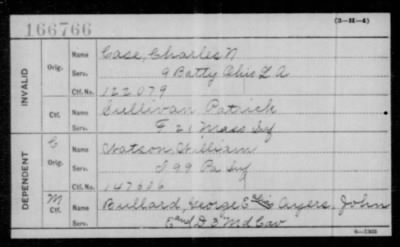 166766
(3-M-4)
INVALID
Orig. Name Case, Charles N
Serv. 9 Batty Ohio L A
Ctf. No. 122079
Ctf. Name Sullivan Patrick
Serv. F 21 Mass Inf
DEPENDENT
C
Orig. Name Watson, William
Serv. I 99 Pa Inf
Ctf. No. 147636
M
Ctf. Name Bullard, George S Ayers, John
Serv. and D 3 Md Cav